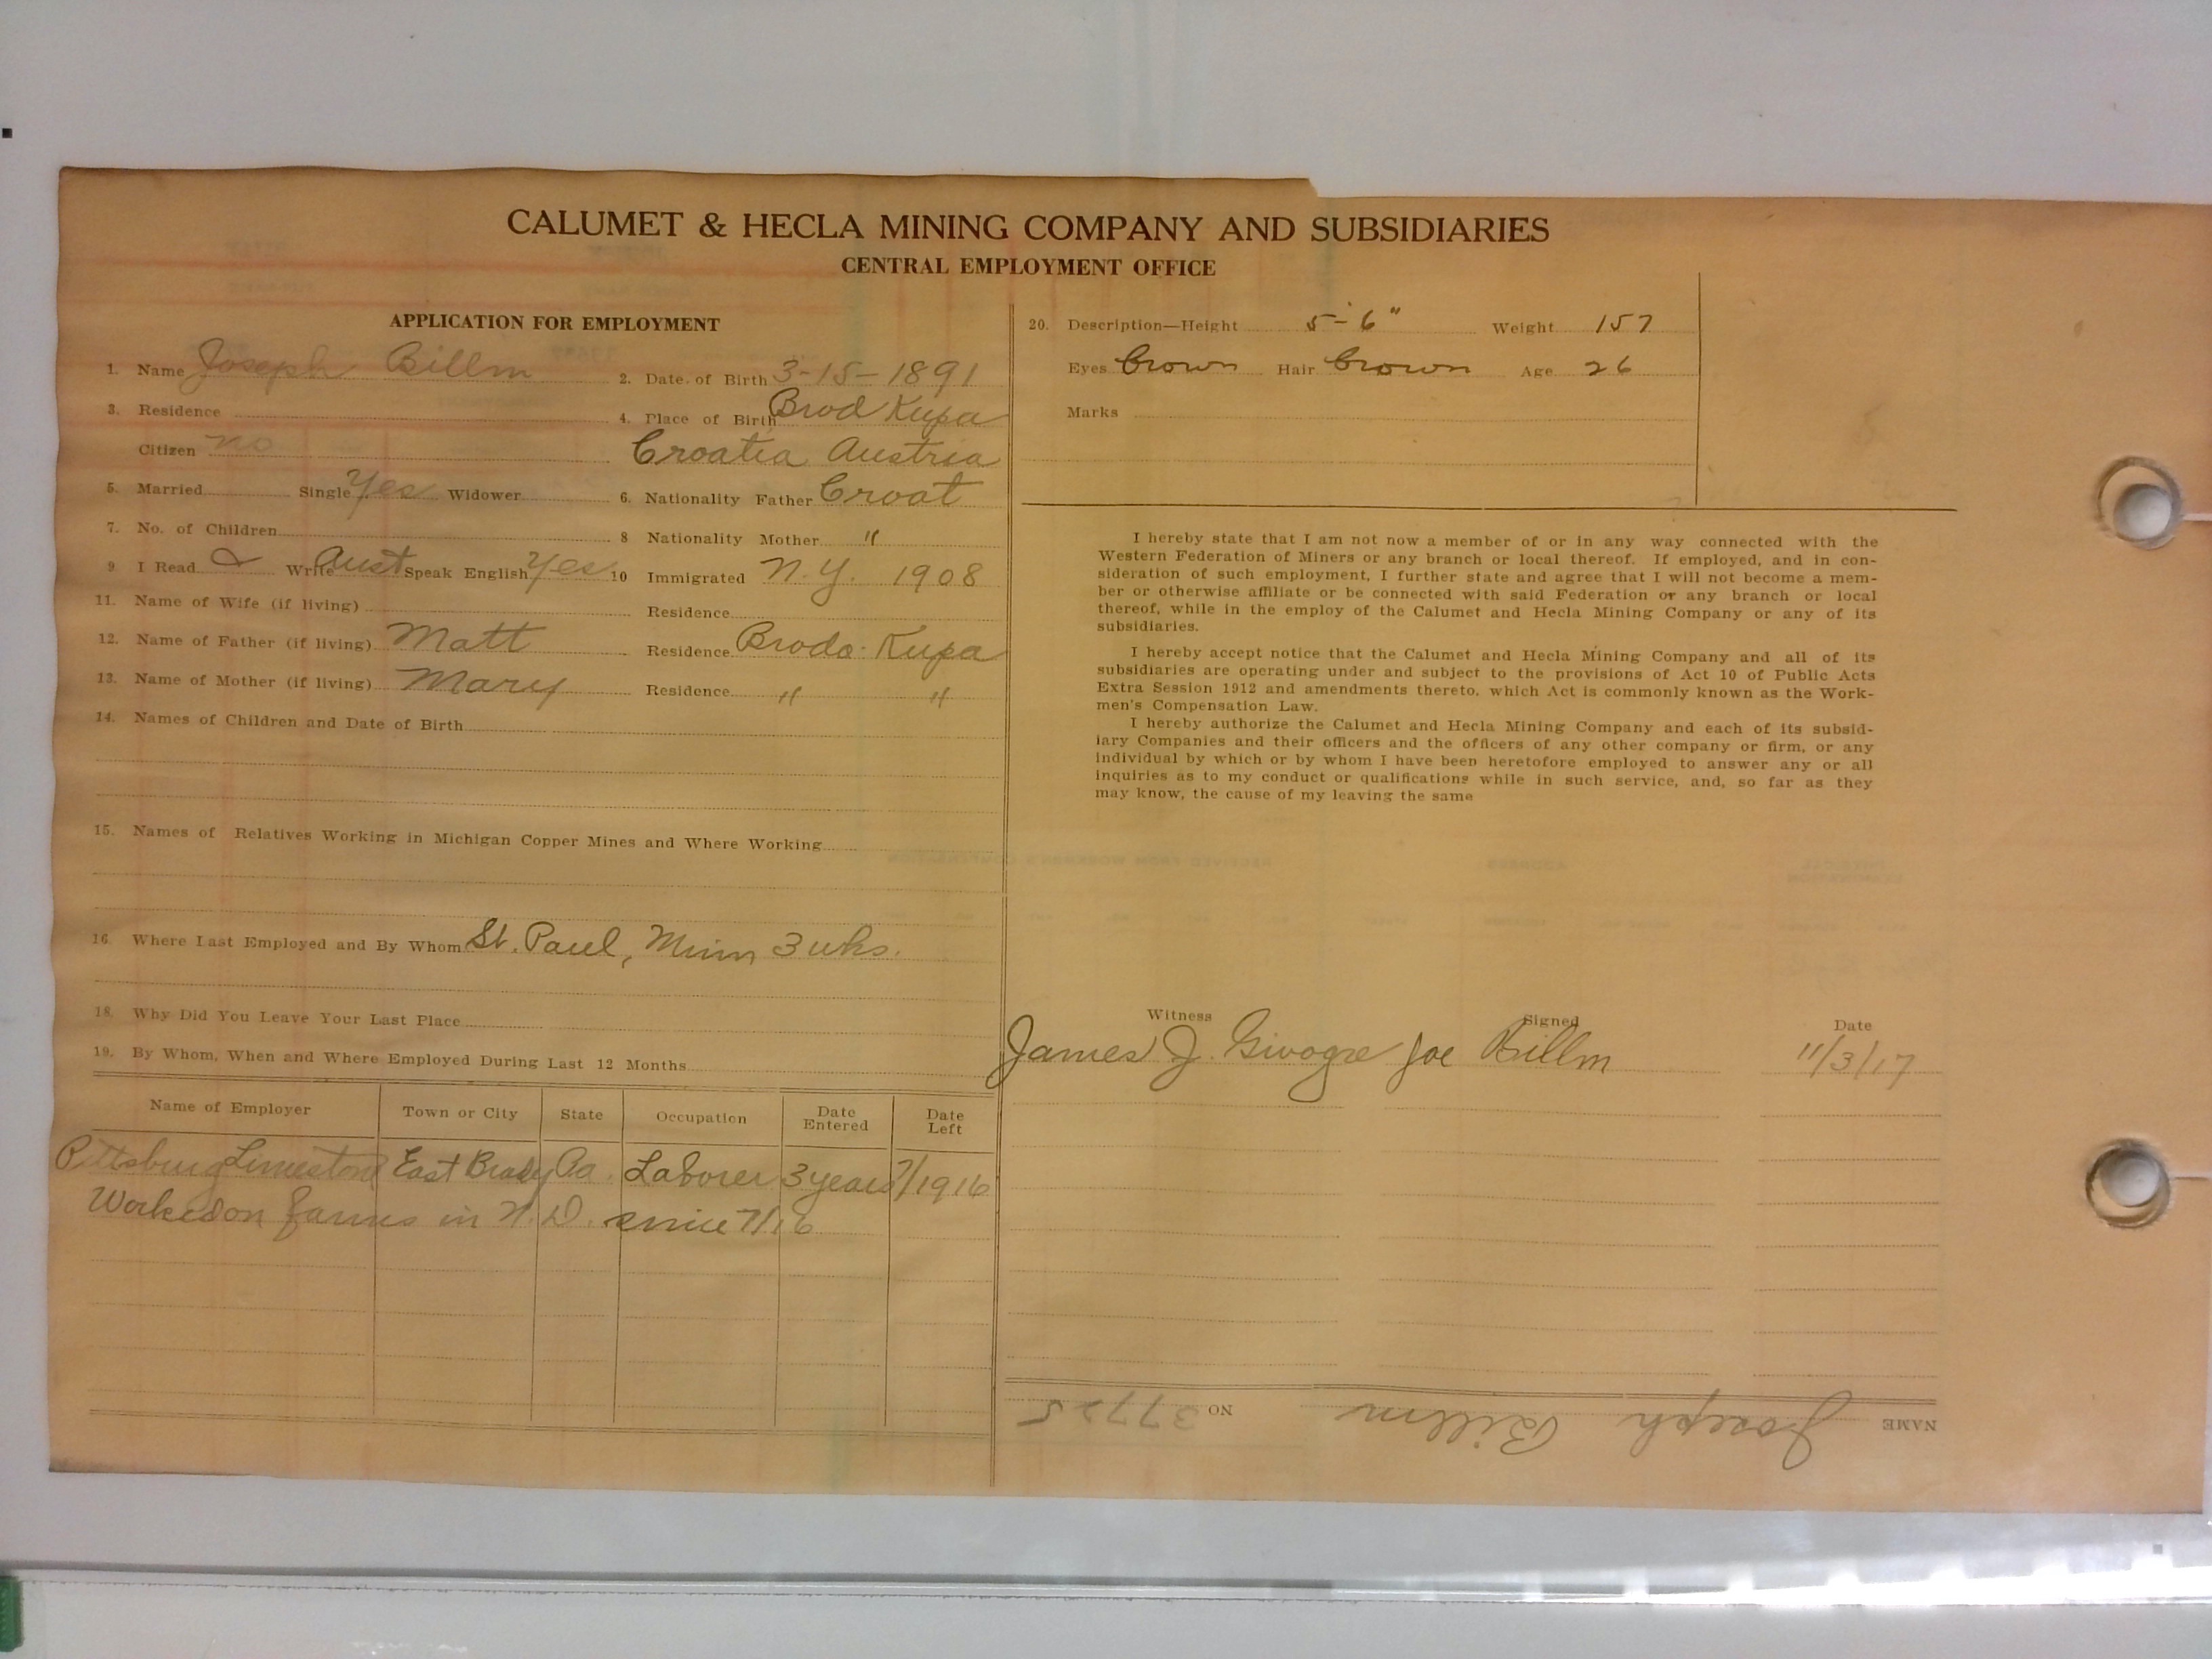 CALUMET & HECLA MINING COMPANY AND SUBSIDIARIES
CENTRAL EMPLOYMENT OFFICE
APPLICATION FOR EMPLOYMENT
1. Name Joseph Billm 2. Date of Birth 3-15-1891
3. Residence 4. Place of Birth Brod Kupa
Citizen no Croatia Austria
5. Married Single Yes Widower 6. Nationality Father Croat
7. No. of Children 8 Nationality Mother "
9 I Read & Write Aust Speak English Yes 10 Immigrated N.Y. 1908
11. Name of Wife (if living) Residence
12. Name of Father (if living) Matt Residence Broda Kupa
13. Name of Mother (if living) Mary Residence " "
14. Names of Children and Date of Birth
15. Names of Relatives Working in Michigan Copper Mines and Where Working
16. Where Last Employed and By Whom St. Paul, Minn 3 wks.
18. Why Did You Leave Your Last Place
19. By Whom, When and Where Employed During Last 12 Months
Name of Employer Town or City State Occupation Date Entered Date Left
Pittsburg Limestone East Brady Pa. Laborer 3 years 7/1916
Worked on farms in N.D. since 7/16
20. Description—Height 5-6" Weight 157
Eyes Brown Hair Brown Age 26
Marks
I hereby state that I am not now a member of or in any way connected with the
Western Federation of Miners or any branch or local thereof. If employed, and in con-
sideration of such employment, I further state and agree that I will not become a mem-
ber or otherwise affiliate or be connected with said Federation or any branch or local
thereof, while in the employ of the Calumet and Hecla Mining Company or any of its
subsidiaries.
I hereby accept notice that the Calumet and Hecla Mining Company and all of its
subsidiaries are operating under and subject to the provisions of Act 10 of Public Acts
Extra Session 1912 and amendments thereto, which Act is commonly known as the Work-
men's Compensation Law.
I hereby authorize the Calumet and Hecla Mining Company and each of its subsid-
iary Companies and their officers and the officers of any other company or firm, or any
individual by which or by whom I have been heretofore employed to answer any or all
inquiries as to my conduct or qualifications while in such service, and, so far as they
may know, the cause of my leaving the same
Witness Signed Date
James J. Joe Billm 11/3/17
NAME Joseph Billm NO 37725